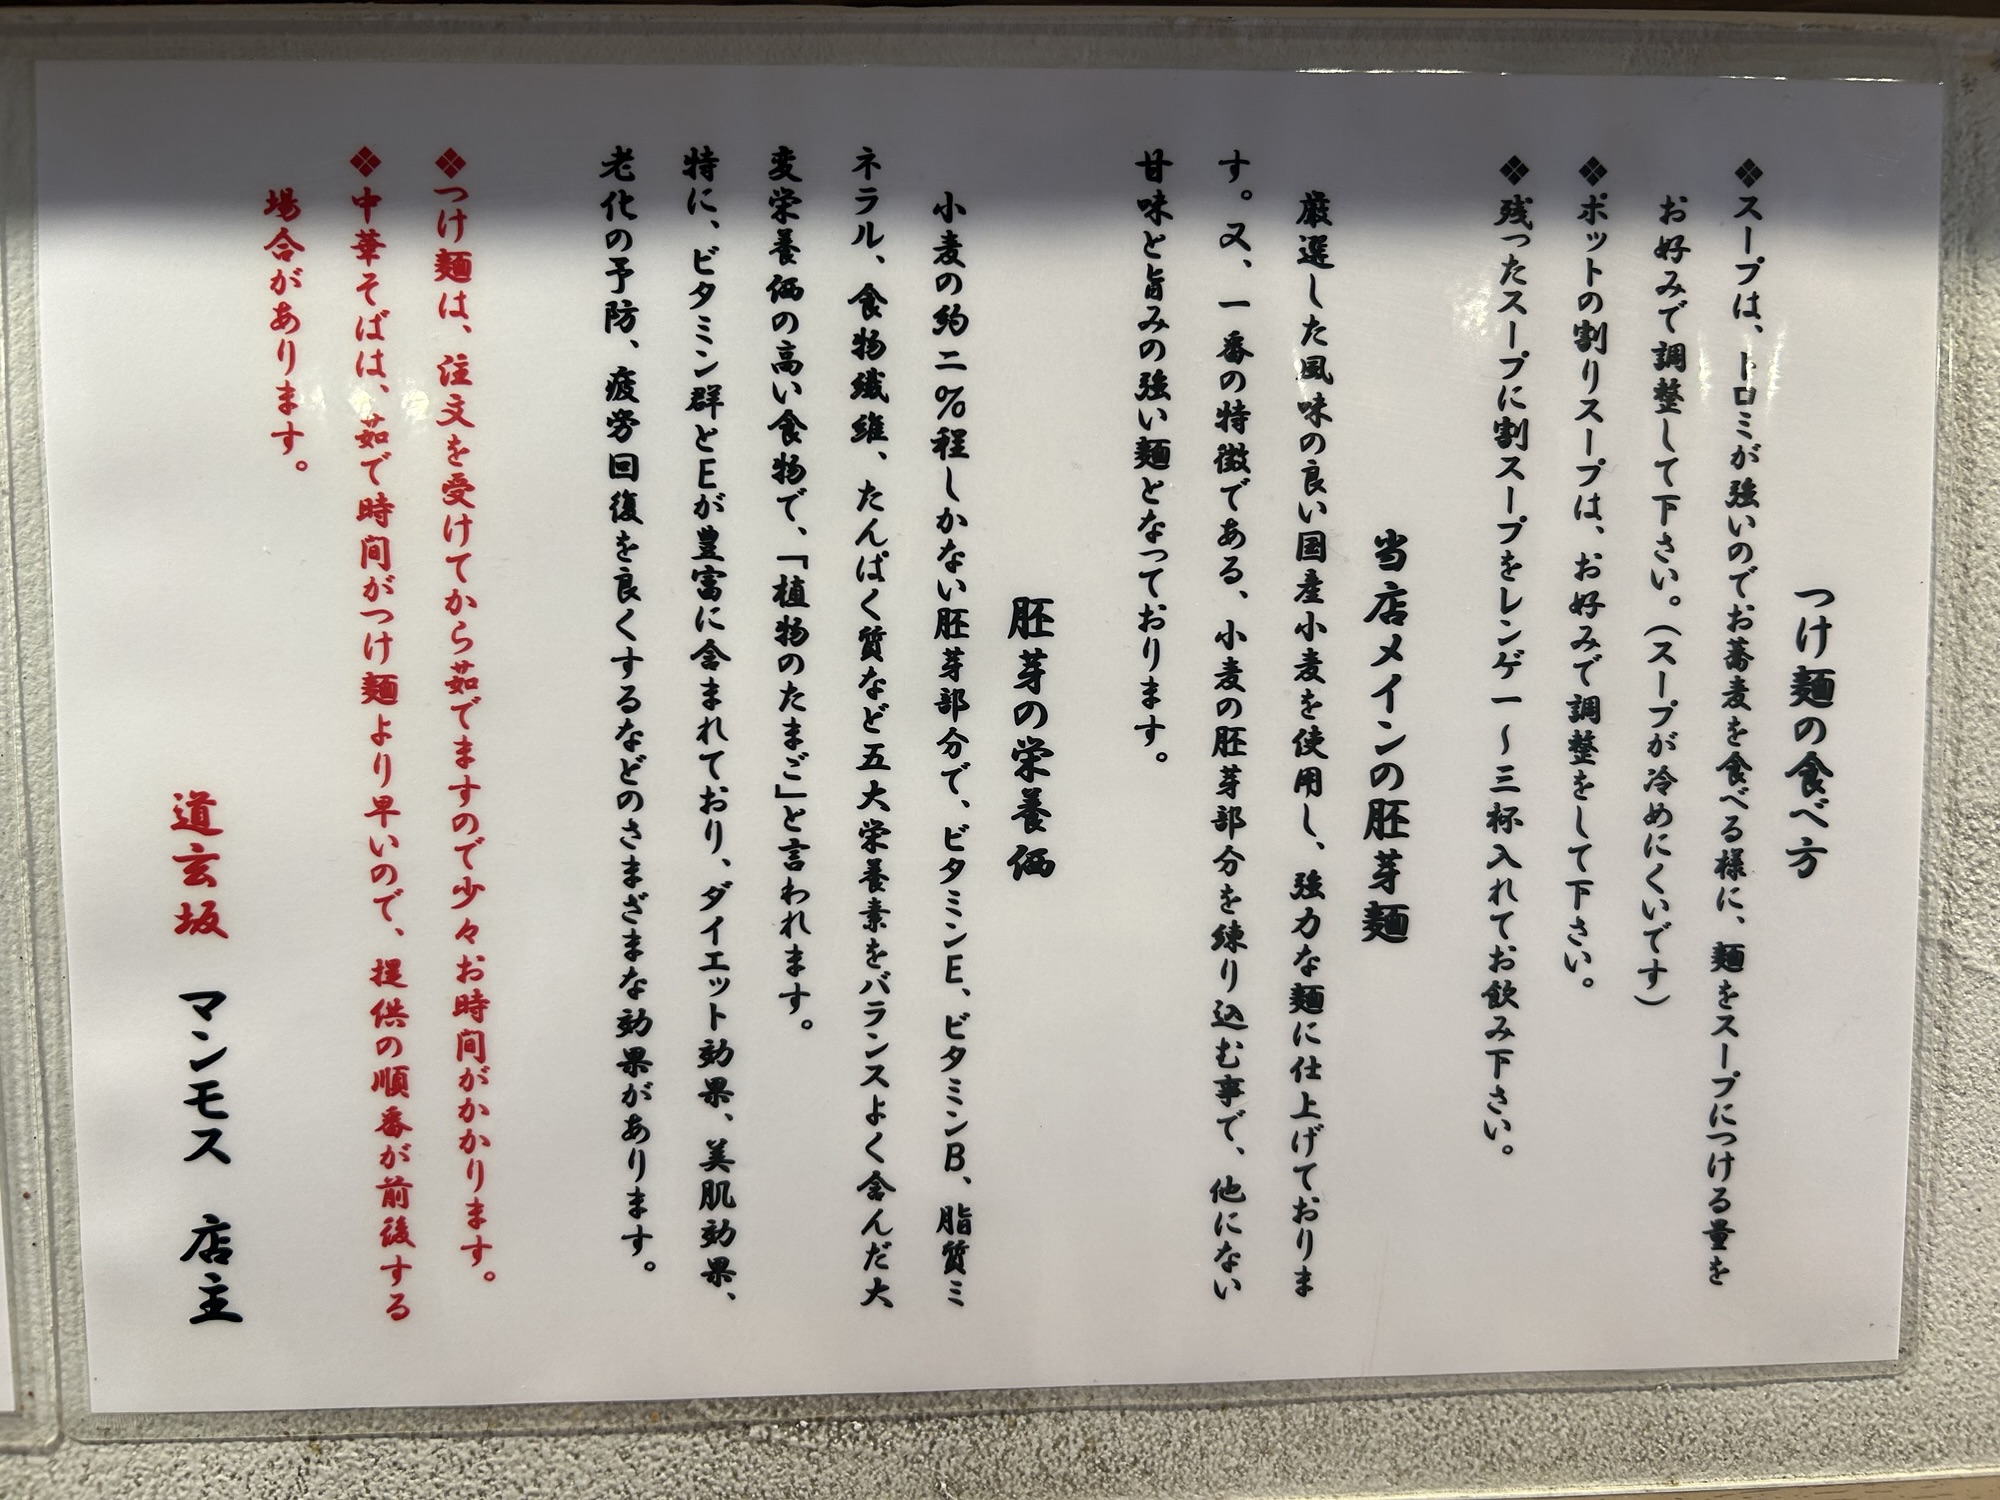 つけ麺の食べ方
❖スープは、トロミが強いのでお蕎麦を食べる様に、麺をスープにつける量を
お好みで調整して下さい。(スープが冷めにくいです)
❖ポットの割りスープは、お好みで調整をして下さい。
❖残ったスープに割スープをレンゲ一～三杯入れてお飲み下さい。
当店メインの胚芽麺
厳選した風味の良い国産小麦を使用し、強力な麺に仕上げておりま
す。又、一番の特徴である、小麦の胚芽部分を練り込む事で、他にない
甘味と旨みの強い麺となっております。
胚芽の栄養価
小麦の約二%程しかない胚芽部分で、ビタミンE、ビタミンB、脂質ミ
ネラル、食物繊維、たんぱく質など五大栄養素をバランスよく含んだ大
変栄養価の高い食物で、「植物のたまご」と言われます。
特に、ビタミン群とEが豊富に含まれており、ダイエット効果、美肌効果、
老化の予防、疲労回復を良くするなどのさまざまな効果があります。
❖つけ麺は、注文を受けてから茹でますので少々お時間がかかります。
❖中華そばは、茹で時間がつけ麺より早いので、提供の順番が前後する
場合があります。
道玄坂 マンモス 店主